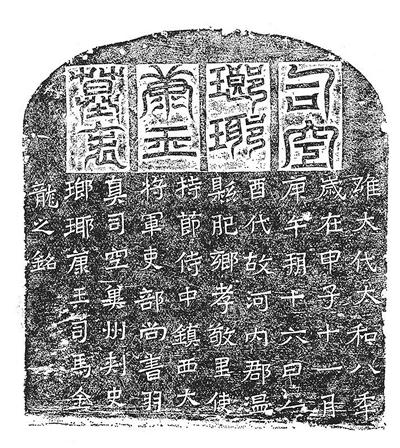 司空
瑯琊
康王
墓表
維大代大和八年
歲在甲子十一月
庚午朔十六日乙
酉代故河內郡溫
縣肥鄉孝敬里使
持節侍中鎮西大
將軍吏部尚書羽
真司空冀州刺史
瑯琊康王司馬金
龍之銘